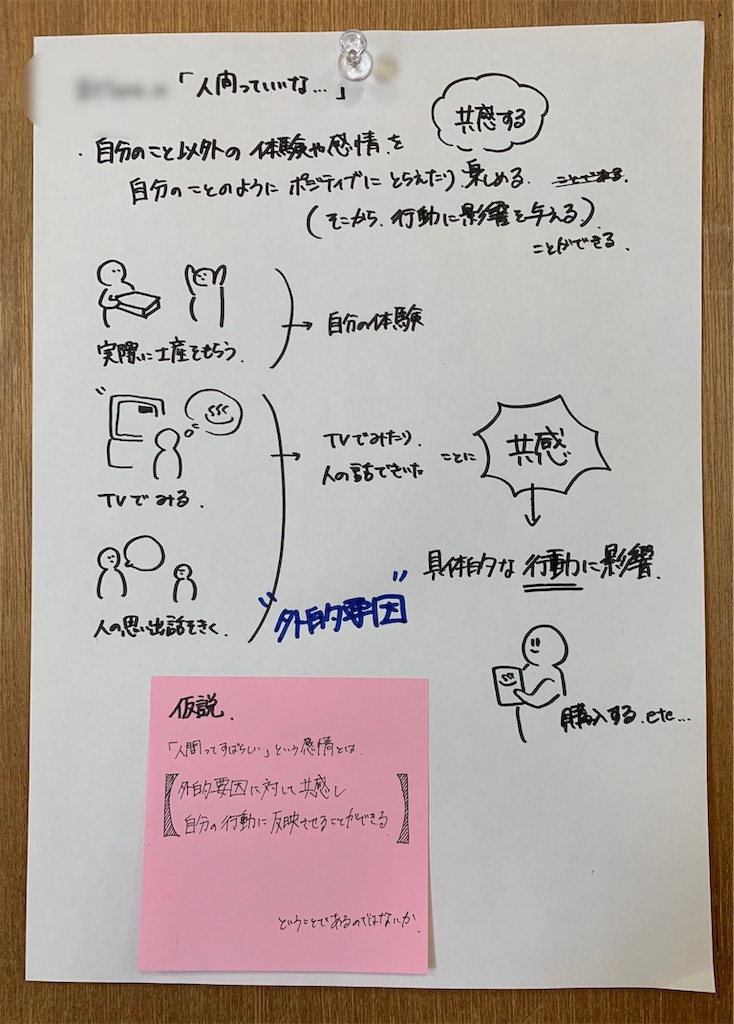 「人間っていいな…」
共感する
・自分のこと以外の体験や感情を
自分のことのようにポジティブにとらえたり楽しめる ことできる。
(そこから、行動に影響を与える)
ことができる。
実際に土産をもらう。
→ 自分の体験
TVでみる。
TVでみたり、
人の話できいた
ことに
共感
人の思い出話をきく。
"外的要因"
具体的な行動に影響。
購入する.etc...
仮説。
「人間ってすばらしい」という感情とは、
【外的要因に対して共感し
自分の行動に反映させることができる】
ということであるのではないか。